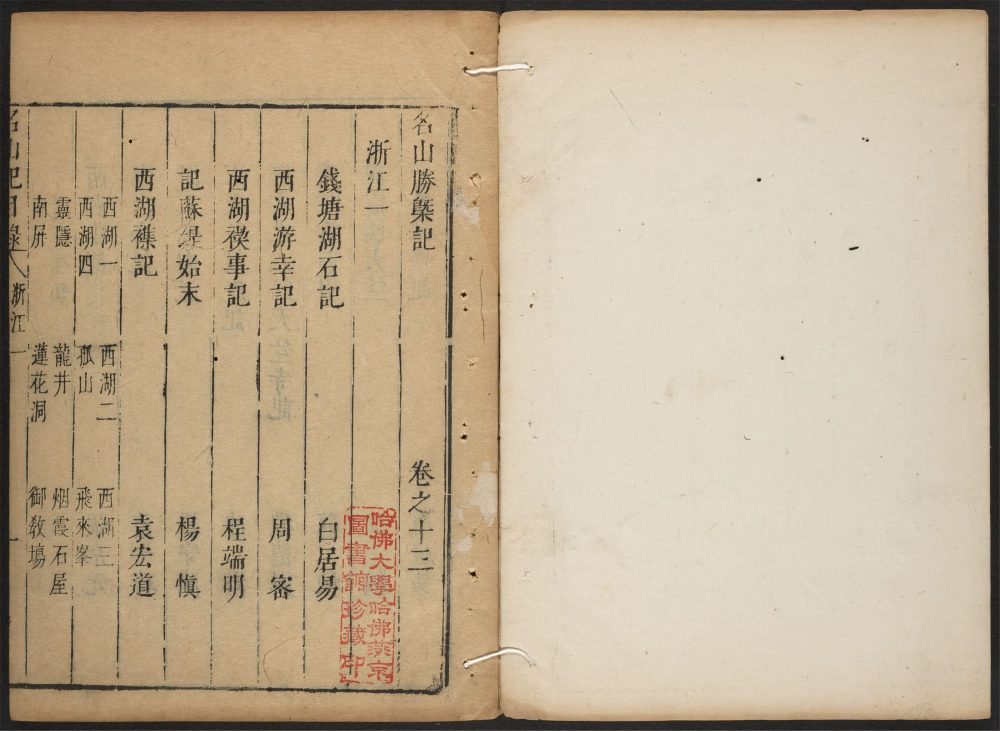 名山勝槩記 卷之十三
浙江一
錢塘湖石記 白居易
西湖游幸記 周密
西湖禊事記 程端明
記蘇堤始末 楊慎
西湖襍記 袁宏道
西湖一 西湖二 西湖三
西湖四 孤山 飛來峯
靈隱 龍井 烟霞石屋
南屏 蓮花洞 御教塲
名山記目錄 浙江一 一
哈佛大學哈佛燕京
圖書館珍藏印